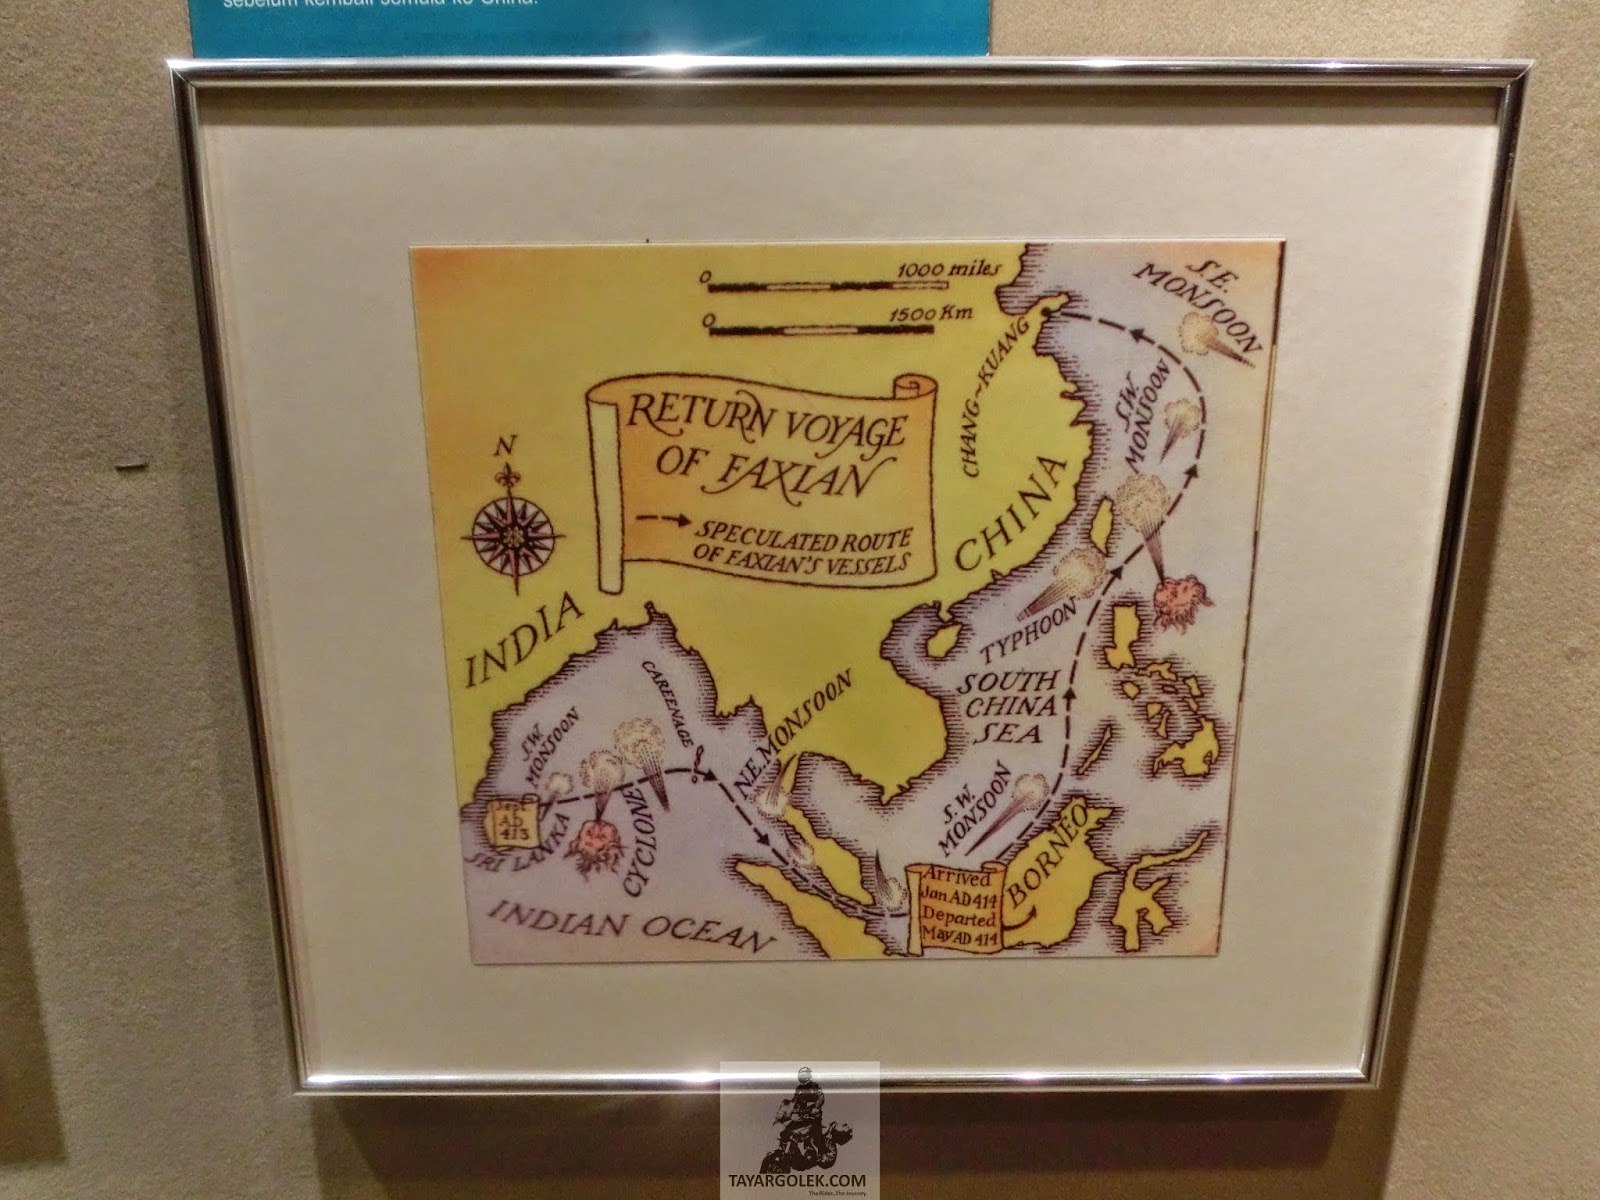 sebelum kembali semula ke China.
0 1000 miles
0 1500 Km
S.E.
MONSOON
CHANG-KUANG
RETURN VOYAGE
OF FAXIAN
SPECULATED ROUTE
OF FAXIAN'S VESSELS
N
S.W.
MONSOON
CHINA
INDIA
TYPHOON
CAREENAGE
SOUTH
CHINA
SEA
N.E. MONSOON
S.W.
MONSOON
Sept
AD
413
SRI LANKA
CYCLONE
S.W.
MONSOON
BORNEO
Arrived
Jan AD 414
Departed
May AD 414
INDIAN OCEAN
TAYARGOLEK.COM
The Rides..The Journey